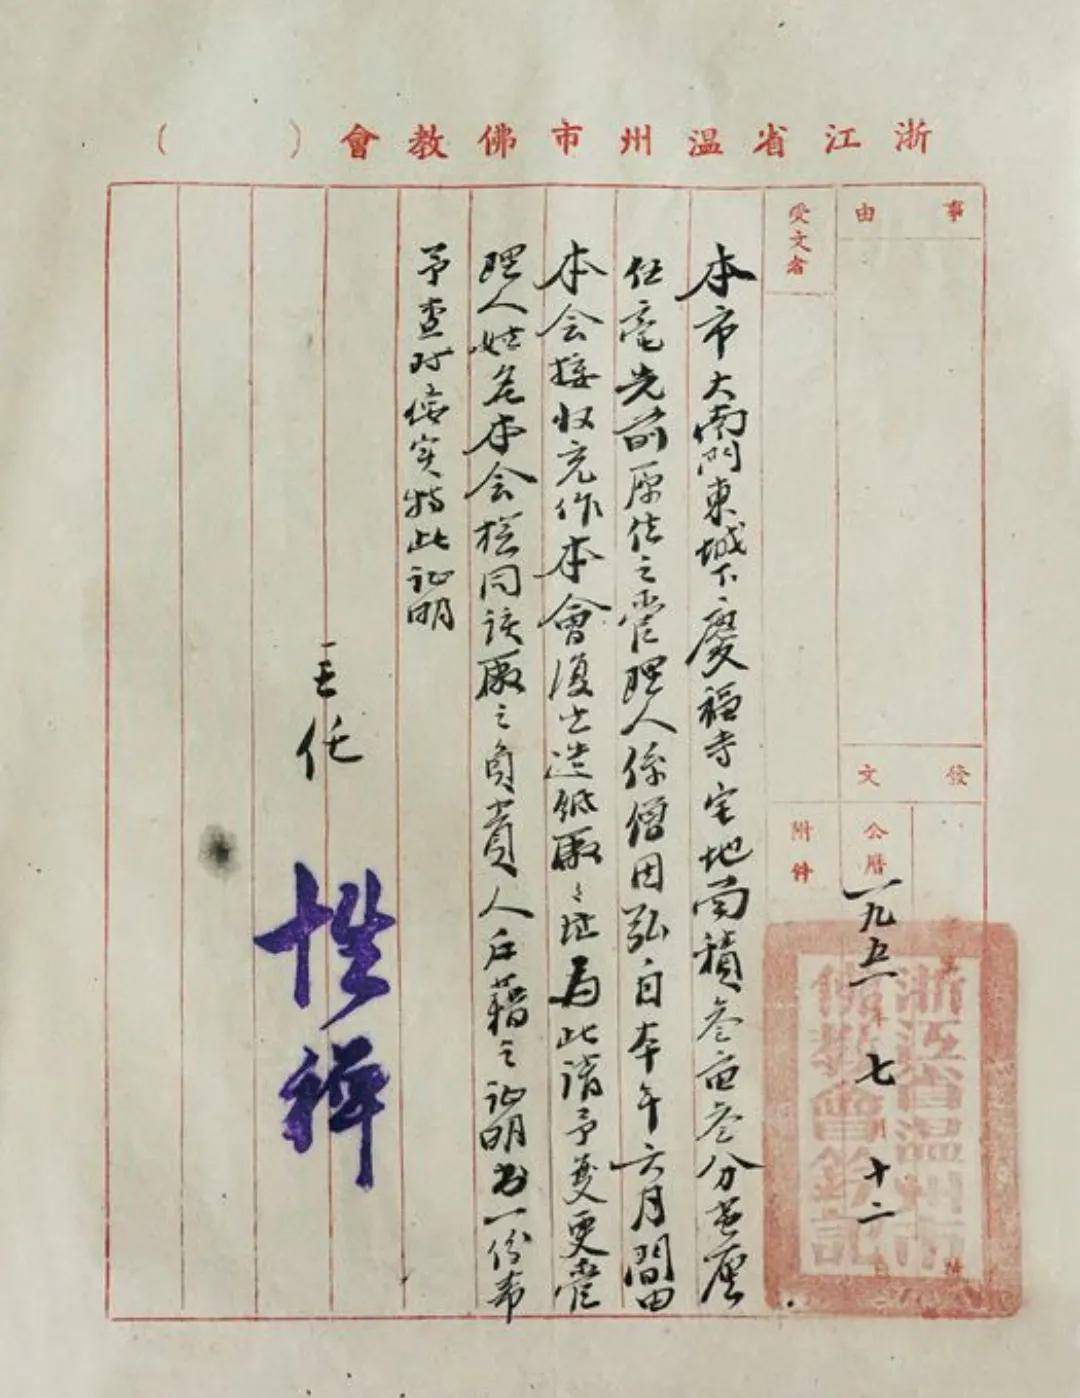 浙江省温州市佛教會（　　）
事由
受文者
發文
附件
公曆一九五一年七月十二日
浙江省温州市佛教會鈐記
本市大南門東城下慶福寺宅地面積叁亩叁分
任 先前原住之管理人係僧因弘自本年六月間由
本会接收充作本會復生造纸廠之址為此請予变更管
理人姓名本会 同该廠之負責人户籍之证明书一份希
予查对信实特此证明
主任